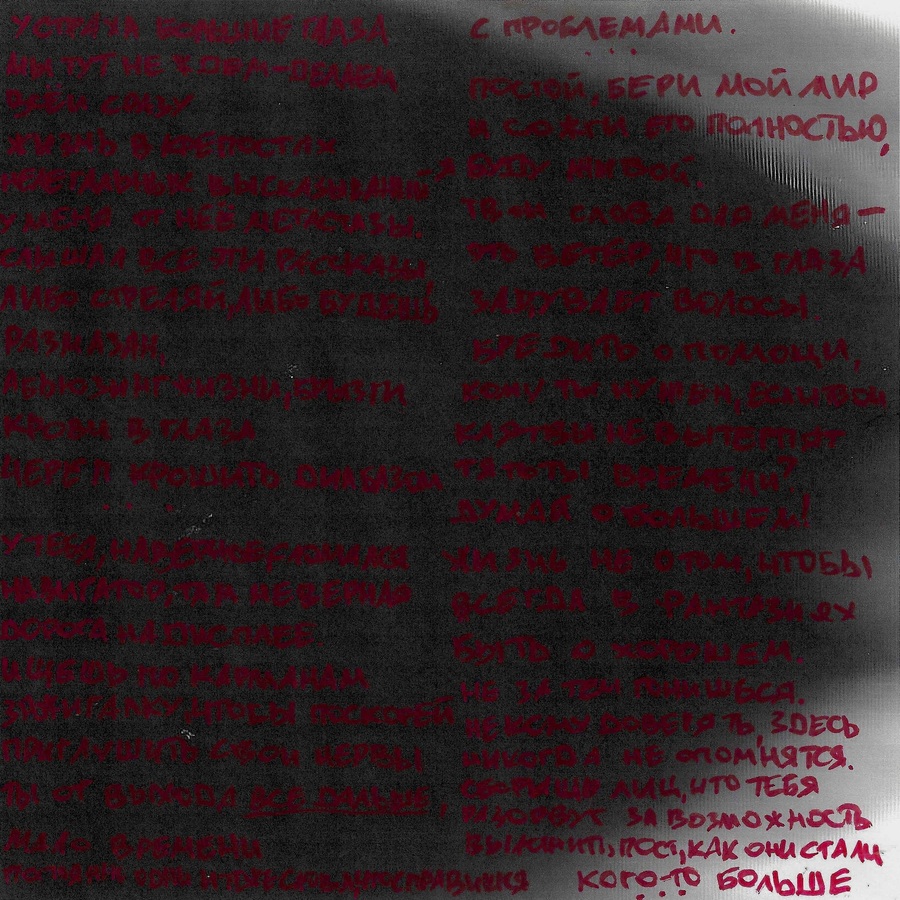 У СТРАХА БОЛЬШИЕ ГЛАЗА
МЫ ТУТ НЕ ДЕЛАЕМ
ЖИЗНЬ В КРЕПОСТЯХ
НЕЛЕГАЛЬНЫХ ВЫСКАЗЫВАНИЙ
У МЕНЯ ОТ НЕЁ МЕТАСТАЗЫ.
СЛЫШАЛ ВСЕ ЭТИ РАССКАЗЫ,
ЛИБО СТРЕЛЯЙ, ЛИБО БУДЕШЬ
РАЗМАЗАН,
АБЬЮЗИНГ ЖИЗНИ, БРЫЗГИ
КРОВИ В ГЛАЗА
ЧЕРЕП КРОШИТЬ
. . .
У ТЕБЯ, НАВЕРНОЕ, СЛОМАЛСЯ
НАВИГАТОР, ТАМ НЕВЕРНАЯ
ДОРОГА НА ДИСПЛЕЕ
ИЩЕШЬ ПО КАРМАНАМ
ЗАЖИГАЛКУ, ЧТОБЫ ПОСКОРЕЙ
ПРИГЛУШИТЬ СВОИ НЕРВЫ
ТЫ ОТ ВЫХОДА ВСЕ ДАЛЬШЕ,
МАЛО ВРЕМЕНИ
С ПРОБЛЕМАМИ.
. . .
ПОСТОЙ, БЕРИ МОЙ МИР
И СОЖГИ ЕГО ПОЛНОСТЬЮ,
БУДУ ЖИВОЙ.
ТВОИ СЛОВА ДЛЯ МЕНЯ —
ЭТО ВЕТЕР, ЧТО В ГЛАЗА
ЗАДУВАЕТ ВОЛОСЫ.
БРЕДИТЬ О ПОМОЩИ,
КОМУ ТЫ НУЖЕН, ЕСЛИ ТВОИ
КЛЯТВЫ НЕ ВЫТЕРПЯТ
ТЯГОТЫ ВРЕМЕНИ?
ДУМАЙ О БОЛЬШЕМ!
ЖИЗНЬ НЕ О ТОМ, ЧТОБЫ
ВСЕГДА В ФАНТАЗИЯХ
БЫТЬ О ХОРОШЕМ.
НЕ ЗА ТЕМ ГОНИШЬСЯ.
НЕКОМУ ДОВЕРЯТЬ, ЗДЕСЬ
НИКОГДА НЕ ОПОМНЯТСЯ.
СБОРИЩЕ ЛИЦ, ЧТО ТЕБЯ
РАЗОРВУТ ЗА ВОЗМОЖНОСТЬ
ВЫЛОЖИТЬ ПОСТ, КАК ОНИ СТАЛИ
КОГО-ТО БОЛЬШЕ
. . .